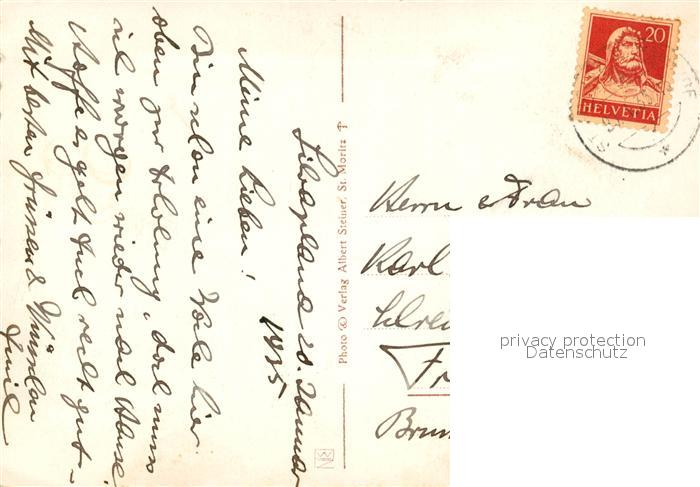 Silvaplana 20. Januar
1935
Meine Lieben!
Bin schon eine Woche hier
oben zur Erholung, doch muss
ich morgen wieder nach Hause.
Hoffe es geht Euch recht gut.
Mit besten Grüssen &
Emil
Photo © Verlag Albert Steiner, St. Moritz
20
HELVETIA
Herrn & Frau
Karl
Schrei
Fr
Brun
privacy protection
Datenschutz